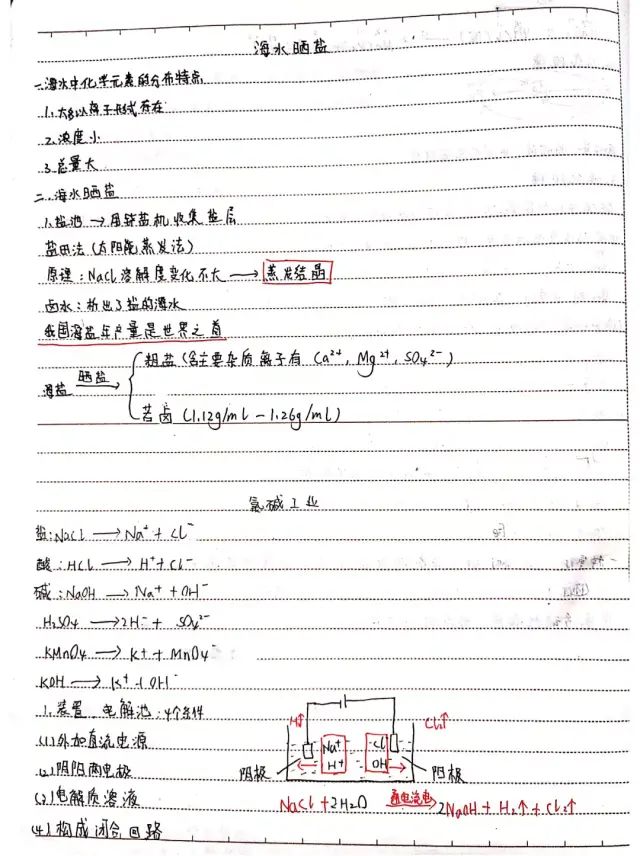 海水晒盐
一.海水中化学元素的分布特点
1.大多以离子形式存在
2.浓度小
3.总量大
二.海水晒盐
1.盐池 → 用 盐机收集盐层
盐田法(太阳能蒸发法)
原理:NaCl溶解度变化不大 → 蒸发结晶
卤水:析出了盐的海水
我国海盐年产量是世界之首
海盐 晒盐→ 粗盐(含主要杂质离子有 Ca²⁺, Mg²⁺, SO₄²⁻)
苦卤(1.12g/ml - 1.26g/ml)
氯碱工业
盐:NaCl → Na⁺ + Cl⁻
酸:HCl → H⁺ + Cl⁻
碱:NaOH → Na⁺ + OH⁻
H₂SO₄ → 2H⁻ + SO₄²⁻
KMnO₄ → K⁺ + MnO₄⁻
KOH → K⁺ + OH⁻
1.装置 电解池:4个条件
(1)外加直流电源
(2)阴阳两电极
(3)电解质溶液
(4)构成闭合回路
H↑ Cl₂↑
Na⁺ Cl
H⁺ OH⁻
阴极 阳极
NaCl+2H₂O 通电流电→ 2NaOH + H₂↑ + Cl₂↑